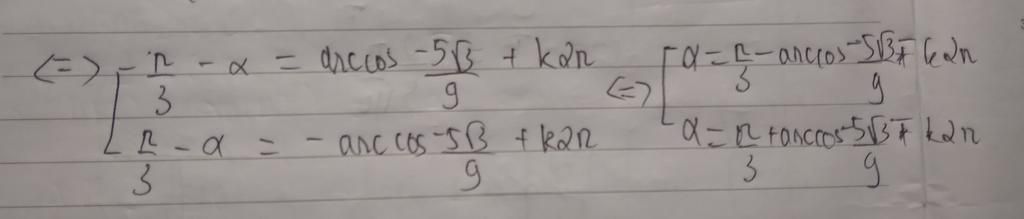 ⇔ [ π/3 - α = arccos -5√3/9 + k2π ⇔ [ α = π/3 - arccos -5√3/9 ∓ k2π
π/3 - α = - arccos -5√3/9 + k2π α = π/3 + arccos -5√3/9 ∓ k2π